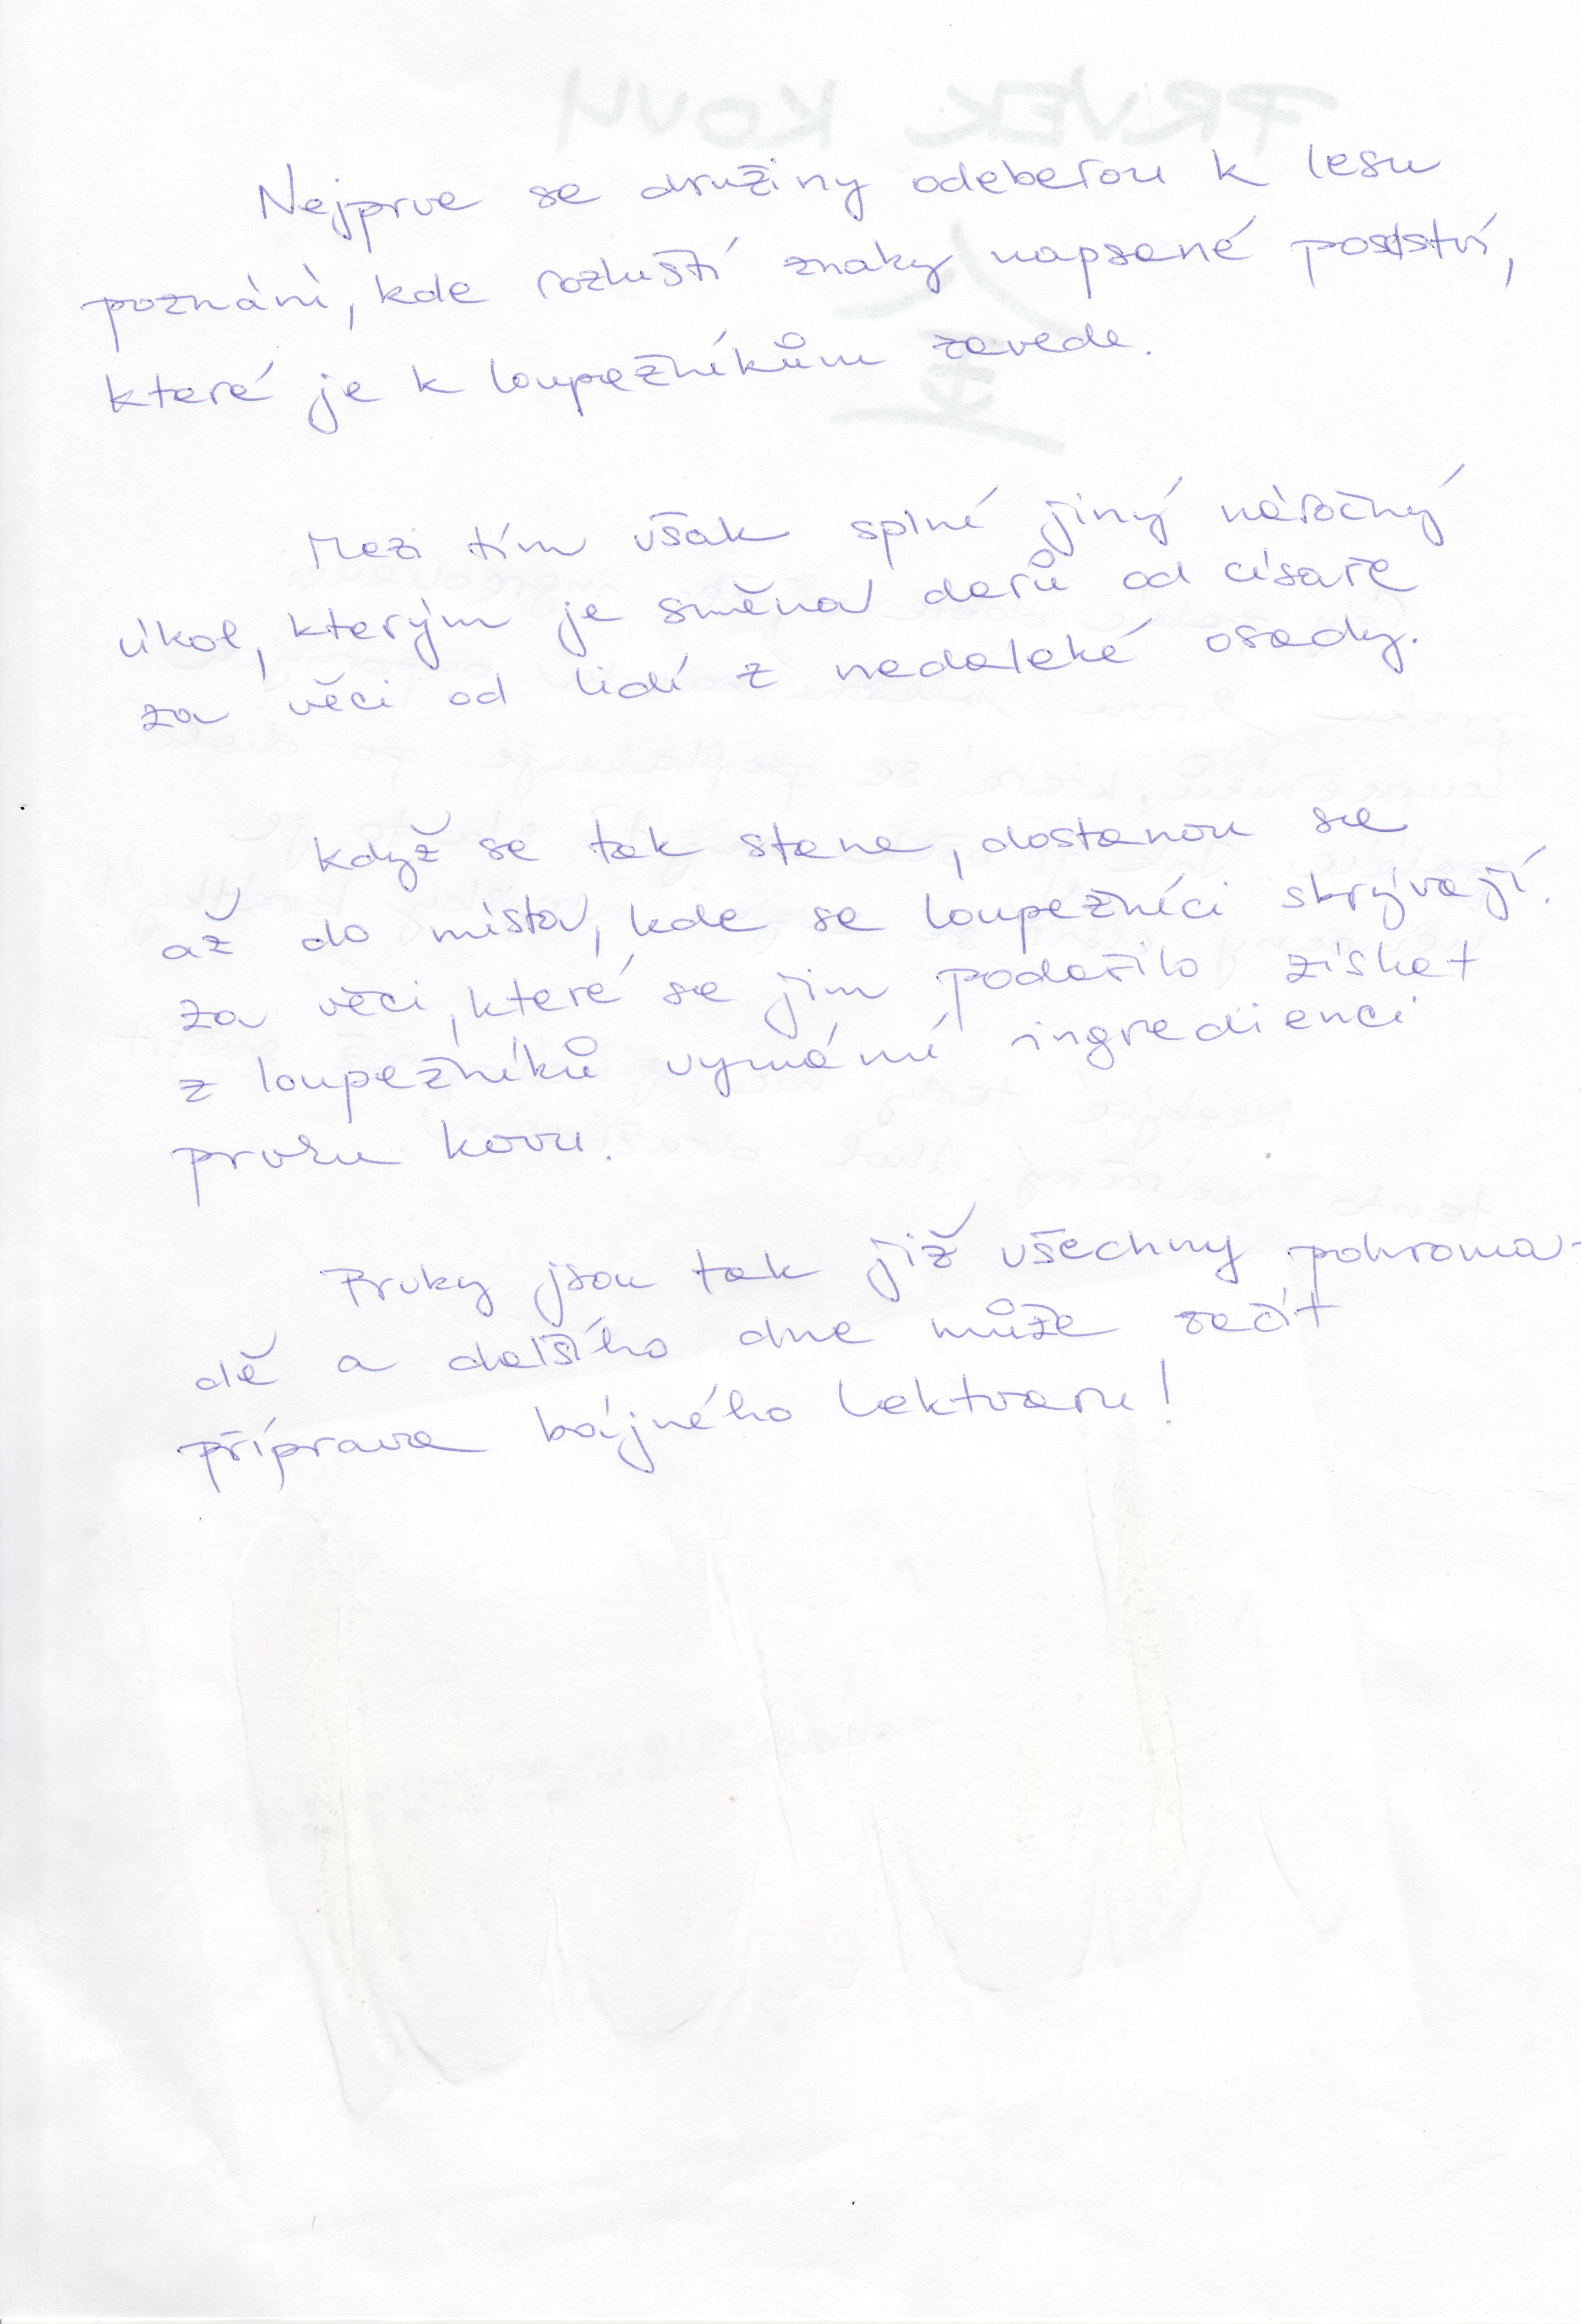 Nejprve se družiny odeberou k lesu
poznání, kde rozluští znaky napsané
které je k loupežníkům zavede.
Mezi tím však splní jiný náročný
úkol, kterým je směna darů od císaře
za věci od lidí z nedaleké osady.
Když se tak stane, dostanou se
až do místa, kde se loupežníci skrývají.
za věci, které se jim podařilo získat
z loupežníků vymámí ingredienci
prvku kovu.
Prvky jsou tak již všechny pohroma-
dě a dalšího dne může začít
příprava bájného lektvaru!
PRVEK KOVU
金